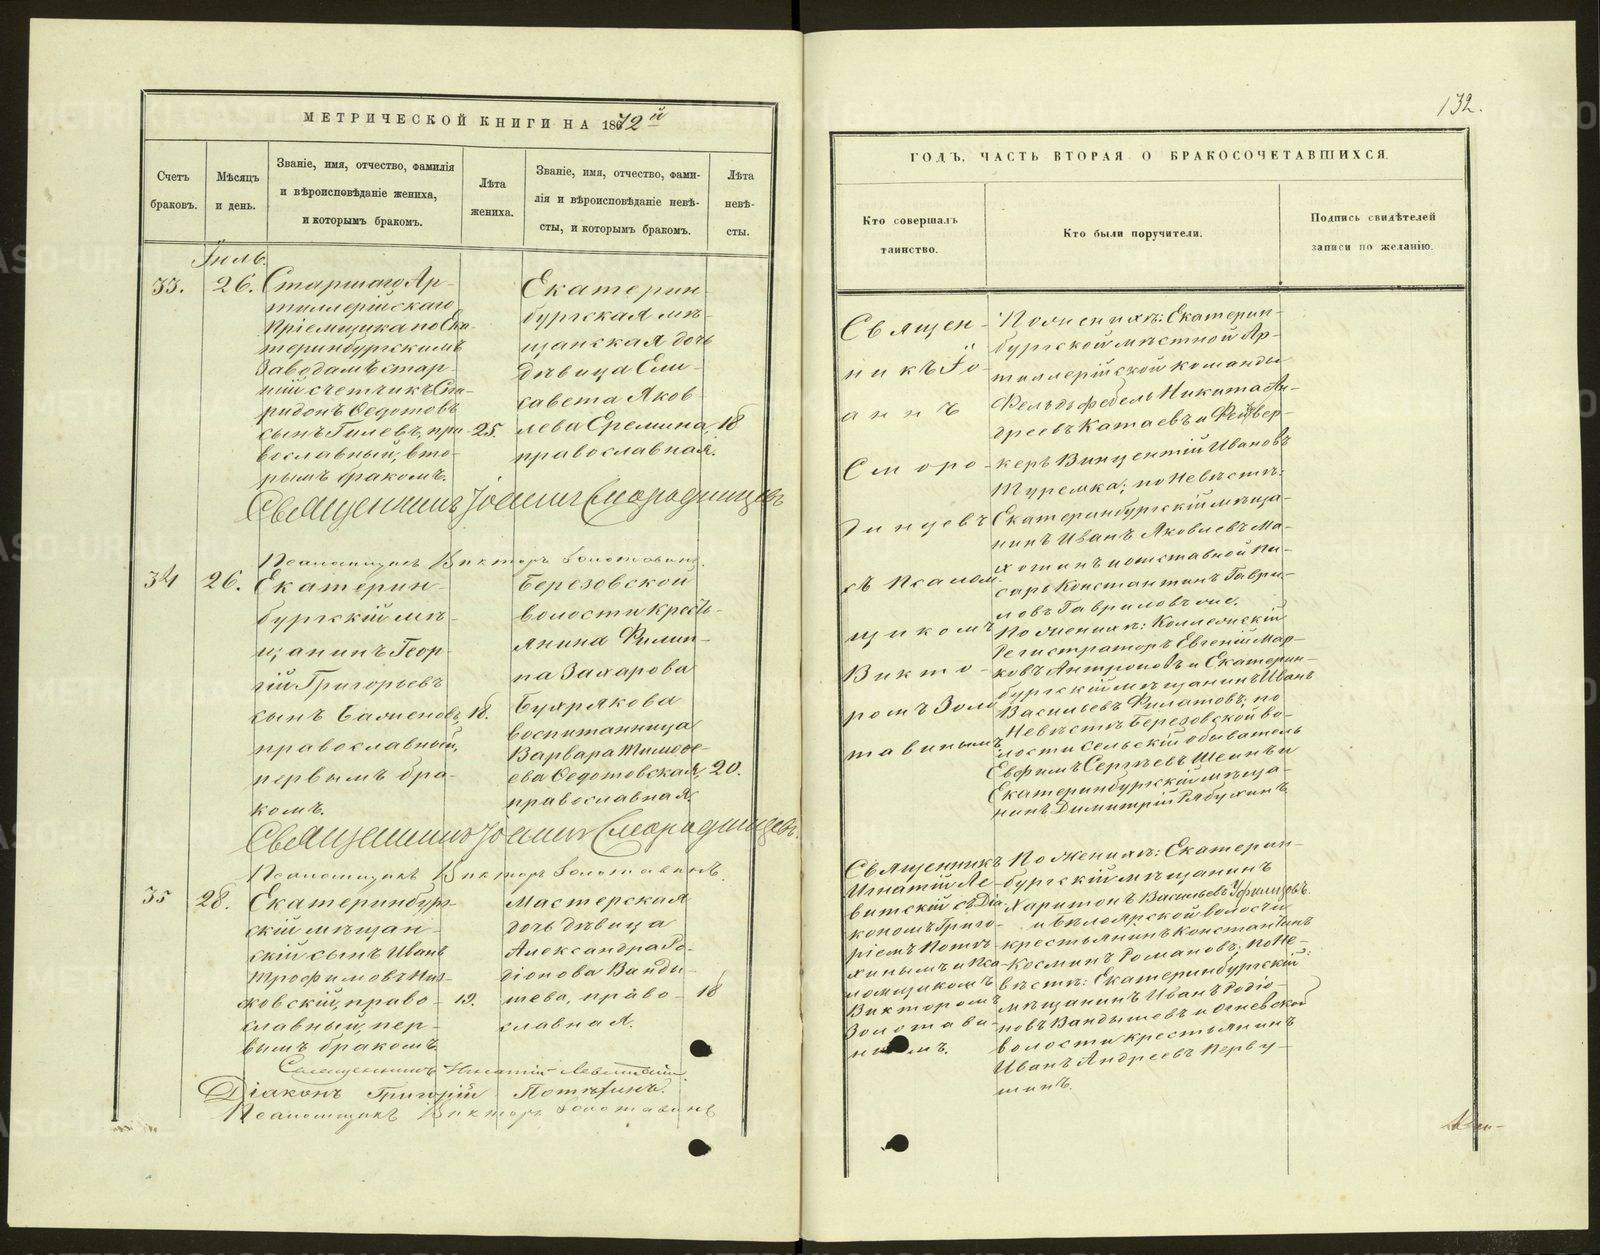 МЕТРИЧЕСКОЙ КНИГИ НА 1872й
Счетъ браковъ.
Мѣсяцъ и день.
Званіе, имя, отчество, фамилія
и вѣроисповѣданіе жениха,
и которымъ бракомъ.
Лѣта жениха.
Званіе, имя, отчество, фами-
лія и вѣроисповѣданіе невѣ-
сты, и которымъ бракомъ.
Лѣта невѣ-
сты.
Іюль.
33.
26.
Старшаго Ар-
тиллерійскаго
Пріемщика по Ека-
теринбургскимъ
Заводамъ стар-
шій счетчикъ Спи-
ридонъ Ѳедотовъ
сынъ Гилевъ, пра-
вославный, вто-
рымъ бракомъ.
25.
Екатерин-
бургская мѣ-
щанская дочь
дѣвица Ели-
савета Яков-
лева Еремина,
православная.
18
Священникъ Іоаннъ Смородинцевъ
Псаломщикъ Викторъ Золотавинъ.
34
26.
Екатерин-
бургскій мѣ-
щанинъ Геор-
гій Григорьевъ
сынъ
православный,
первымъ бра-
комъ.
18.
Березовской
волости кресть-
янина Филип-
па Захарова
Бухрякова
воспитанница
Варвара Тимоѳе-
ева Ѳедотовская,
православная.
20.
Священникъ Іоаннъ Смородинцевъ.
Псаломщикъ Викторъ Золотавинъ.
35
28.
Екатеринбург-
скій мѣщан-
скій сынъ Иванъ
Трофимовъ
православный, пер-
вымъ бракомъ.
19.
Мастерская
дочь дѣвица
Александра Ро-
діонова Ванды-
шева, право-
славная.
18
Священникъ Игнатій Левитскій
Діаконъ Григорій Потѣхинъ.
Псаломщикъ Викторъ Золотавинъ
132.
ГОДЪ, ЧАСТЬ ВТОРАЯ О БРАКОСОЧЕТАВШИХСЯ.
Кто совершалъ
таинство.
Кто были поручители.
Подпись свидѣтелей
записи по желанію.
Священ-
никъ Іо-
аннъ
Сморо-
динцевъ
съ Псалом-
щикомъ
Викто-
ромъ Золо
тавинымъ
По женихѣ: Екатерин-
бургской мѣстной Ар-
тиллерійской команды
Фельдфебель Никита Ан-
дреевъ Катаевъ и Фейвер-
керъ Винцентій Ивановъ
Туремка; по Невѣстѣ:
Екатеринбургскій мѣща-
нинъ Иванъ Яковлевъ Ма-
и отставной Пи-
сарь Константинъ Гаври-
ловъ
По женихѣ: Коллежскій
Регистраторъ Евгеній Мар-
ковъ Антроповъ и Екатерин-
бургскій мѣщанинъ Иванъ
Васильевъ Филатовъ; по
Невѣстѣ Березовской во-
лости сельскій обыватель
Евфимъ Сергѣевъ и
Екатеринбургскій мѣща-
нинъ Димитрій Рябухинъ.
Священникъ
Игнатій Ле-
витскій съ Діа
кономъ Григо-
ріемъ Потѣ-
хинымъ и Пса-
ломщикомъ
Викторомъ
Золотави-
нымъ.
По женихѣ: Екатерин-
бургскій мѣщанинъ
Харитонъ Васильевъ Уфимцовъ
и Бѣлоярской волости
крестьянинъ Константинъ
Косминъ Романовъ; по Не-
вѣстѣ: Екатеринбургскій
мѣщанинъ Иванъ Родіо-
новъ Вандышовъ и Огневской
волости крестьянинъ
Иванъ Андреевъ Перву-
шинъ.
METRIKI.GASO-URAL.RU